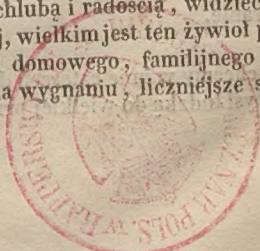 chlubą i radością, widziec
j, wielkim jest ten żywioł p
domowego, familijnego
na wygnaniu, liczniéjsze s
NAR. POLS. W RAPERS